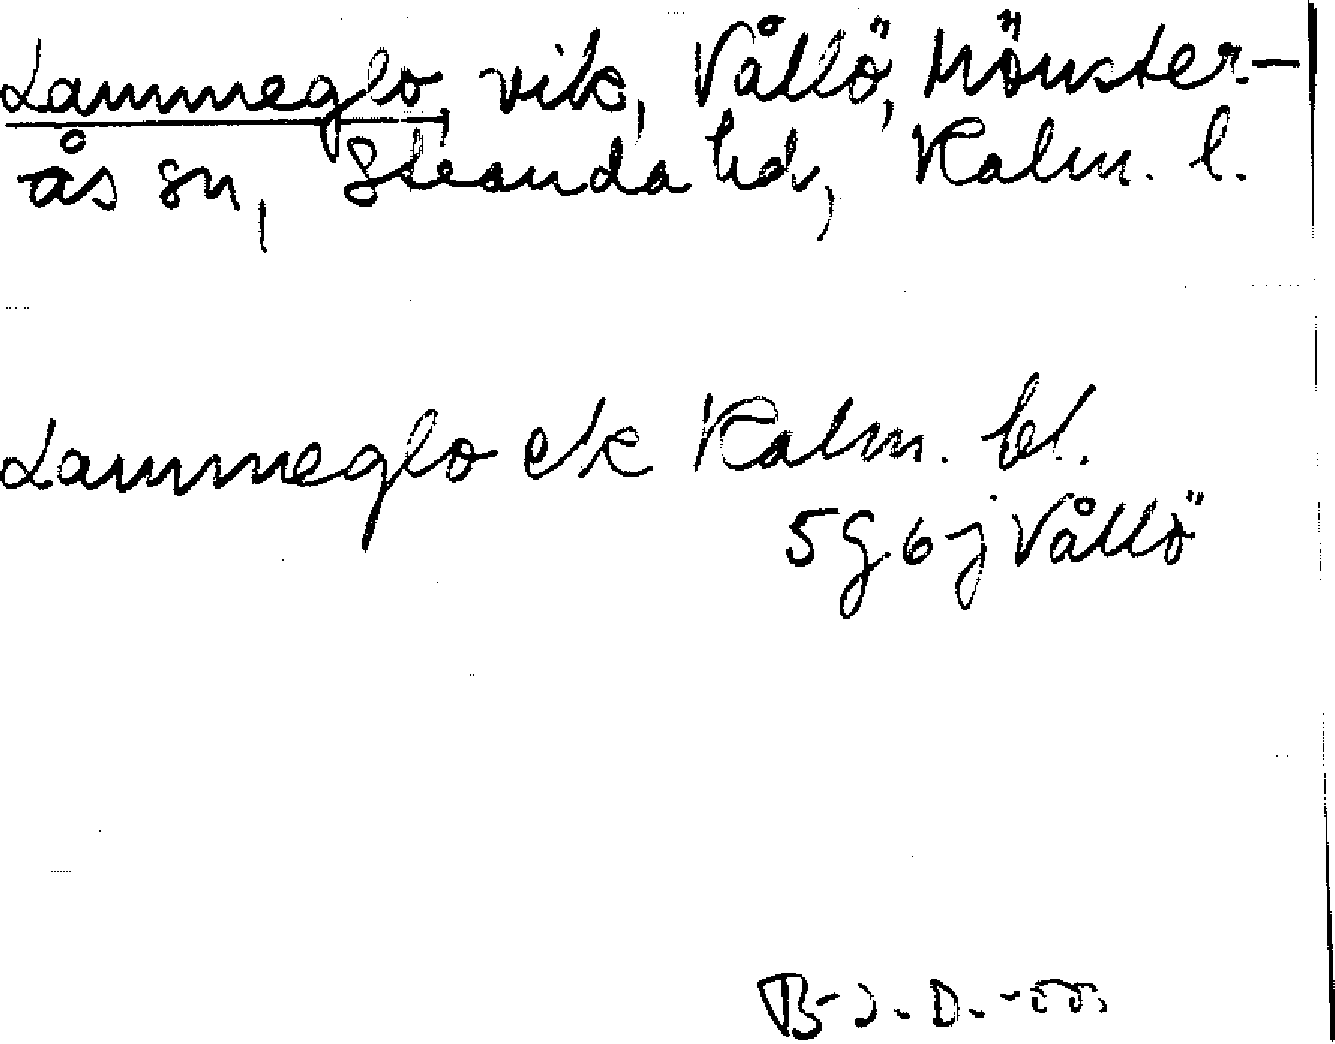 Lammeglo, vik, Vållö, Mönster-
ås sn, Stranda hd, Kalm. l.
Lammeglo ek Kalm. bl.
5g 6j Vållö
B-J. D.